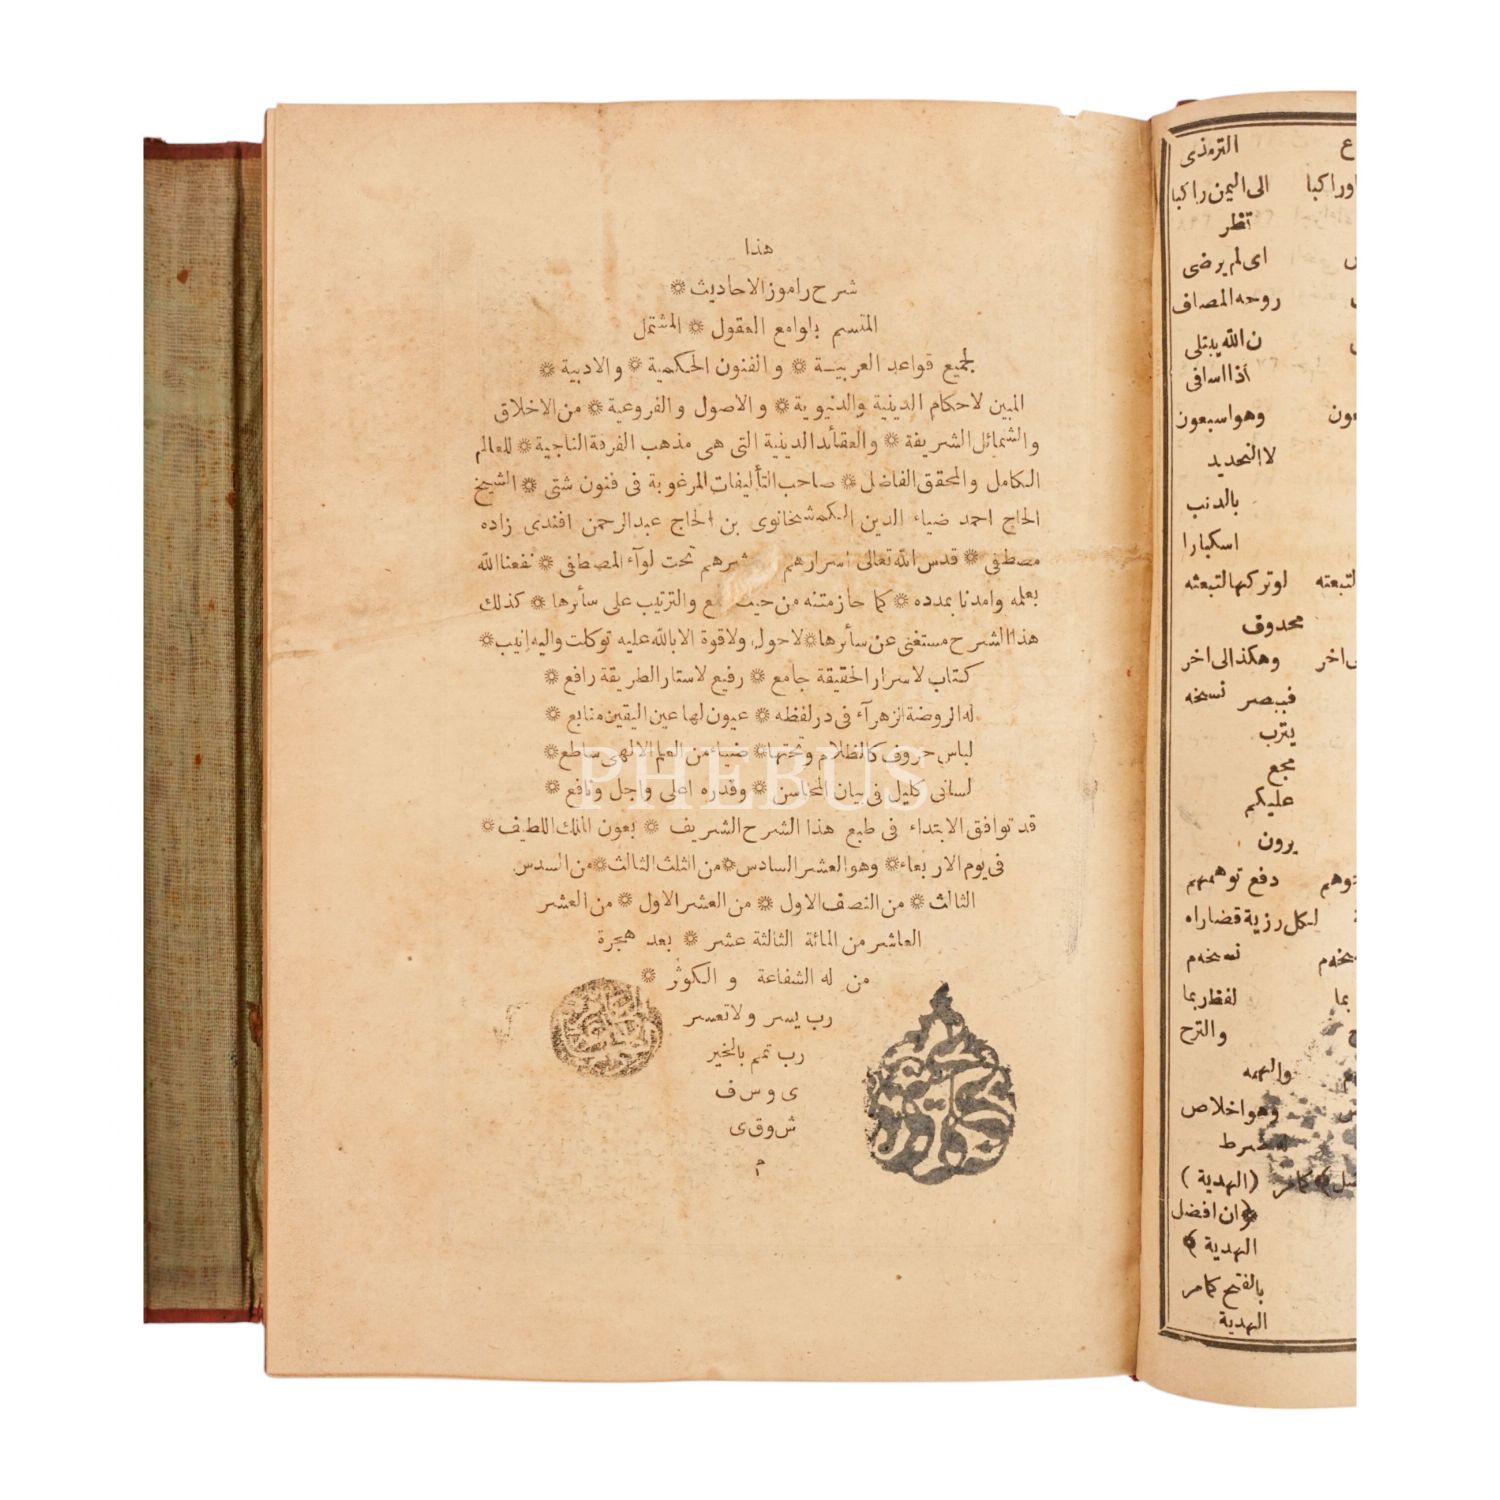 هذا
شرح راموز الاحاديث ❊
المتسم بلوامع العقول ❊ المشتمل
لجميع قواعد العربية ❊ والفنون الحكمية ❊ والادبية ❊
المبين لاحكام الدينية والدنيوية ❊ والاصول والفروعية ❊ من الاخلاق
والشمائل الشريفة ❊ والعقائد الدينية التى هى مذهب الفرقة الناجية ❊ للعالم
الكامل والمحقق الفاضل ❊ صاحب التأليفات المرغوبة فى فنون شتى ❊ الشيخ
الحاج احمد ضياء الدين الكمشخانوى بن الحاج عبدالرحمن افندى زاده
مصطفى ❊ قدس الله تعالى اسرارهم تحت لوآء المصطفى ❊ نفعنا الله
بعلمه وامدنا بمدده ❊ كما حاز متنه من حيث والترتيب على سأرها ❊ كذلك
هذا الشرح مستغنى عن سأرها ❊ لاحول ولاقوة الا بالله عليه توكلت واليه انيب ❊
كتاب لاسرار الحقيقة جامع ❊ رفيع لاستار الطريقة رافع ❊
له الروضة الزهرآء فى در لفظه ❊ عيون لها عين اليقين منابع ❊
لباس حروف كالظلام وتحتها ❊ ضياء من العلم الالهى ساطع ❊
لسانى كليل فى بيان المحاسن ❊ وقدره اعلى واجل ونافع ❊
قد توافق الابتداء فى طبع هذا الشرح الشريف ❊ بعون الملك اللطيف ❊
فى يوم الاربعاء ❊ وهو العشر السادس ❊ من الثلث الثالث ❊ من السدس
الثالث ❊ من النصف الاول ❊ من العشر الاول ❊ من العشر
العاشر من المائة الثالثة عشر ❊ بعد هجرة
من له الشفاعة والكوثر ❊
رب يسر ولاتعسر
رب تمم بالخير
ى و س ف
ش و ق ى
م
PHEBUS
ع الترمذى
اورا كبا الى اليمن را كبا
تظر
اى لم يرضى
روحه المصاف
ن الله يبتلى
اذا اسافى
عون وهو اسبعون
لا التحديد
بالدنب
اسكبارا
لتبعته لو تركها لتبعثه
محدوف
ى اخر وهكذا الى اخر
فيبصر نسخه
يترب
مجع
عليكم
يرون
دفع توهمهم
لكل رزية قضاراه
نسخهم
بما لفظ ربما
والترح
والهمه
وهو اخلاص
(الهدية)
ان افضل
الهدية
بالفتح كامر
الهدية